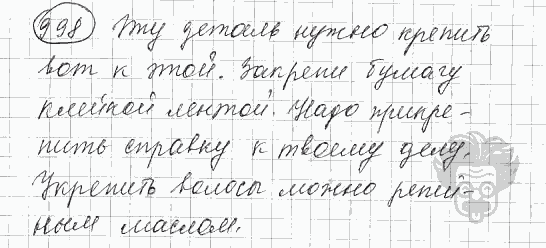 998 Эту деталь нужно крепить
вот к этой. Закрепи бумагу
клейкой лентой. Надо прикре-
пить справку к твоему делу.
Укрепить волосы можно репей-
ным маслом.